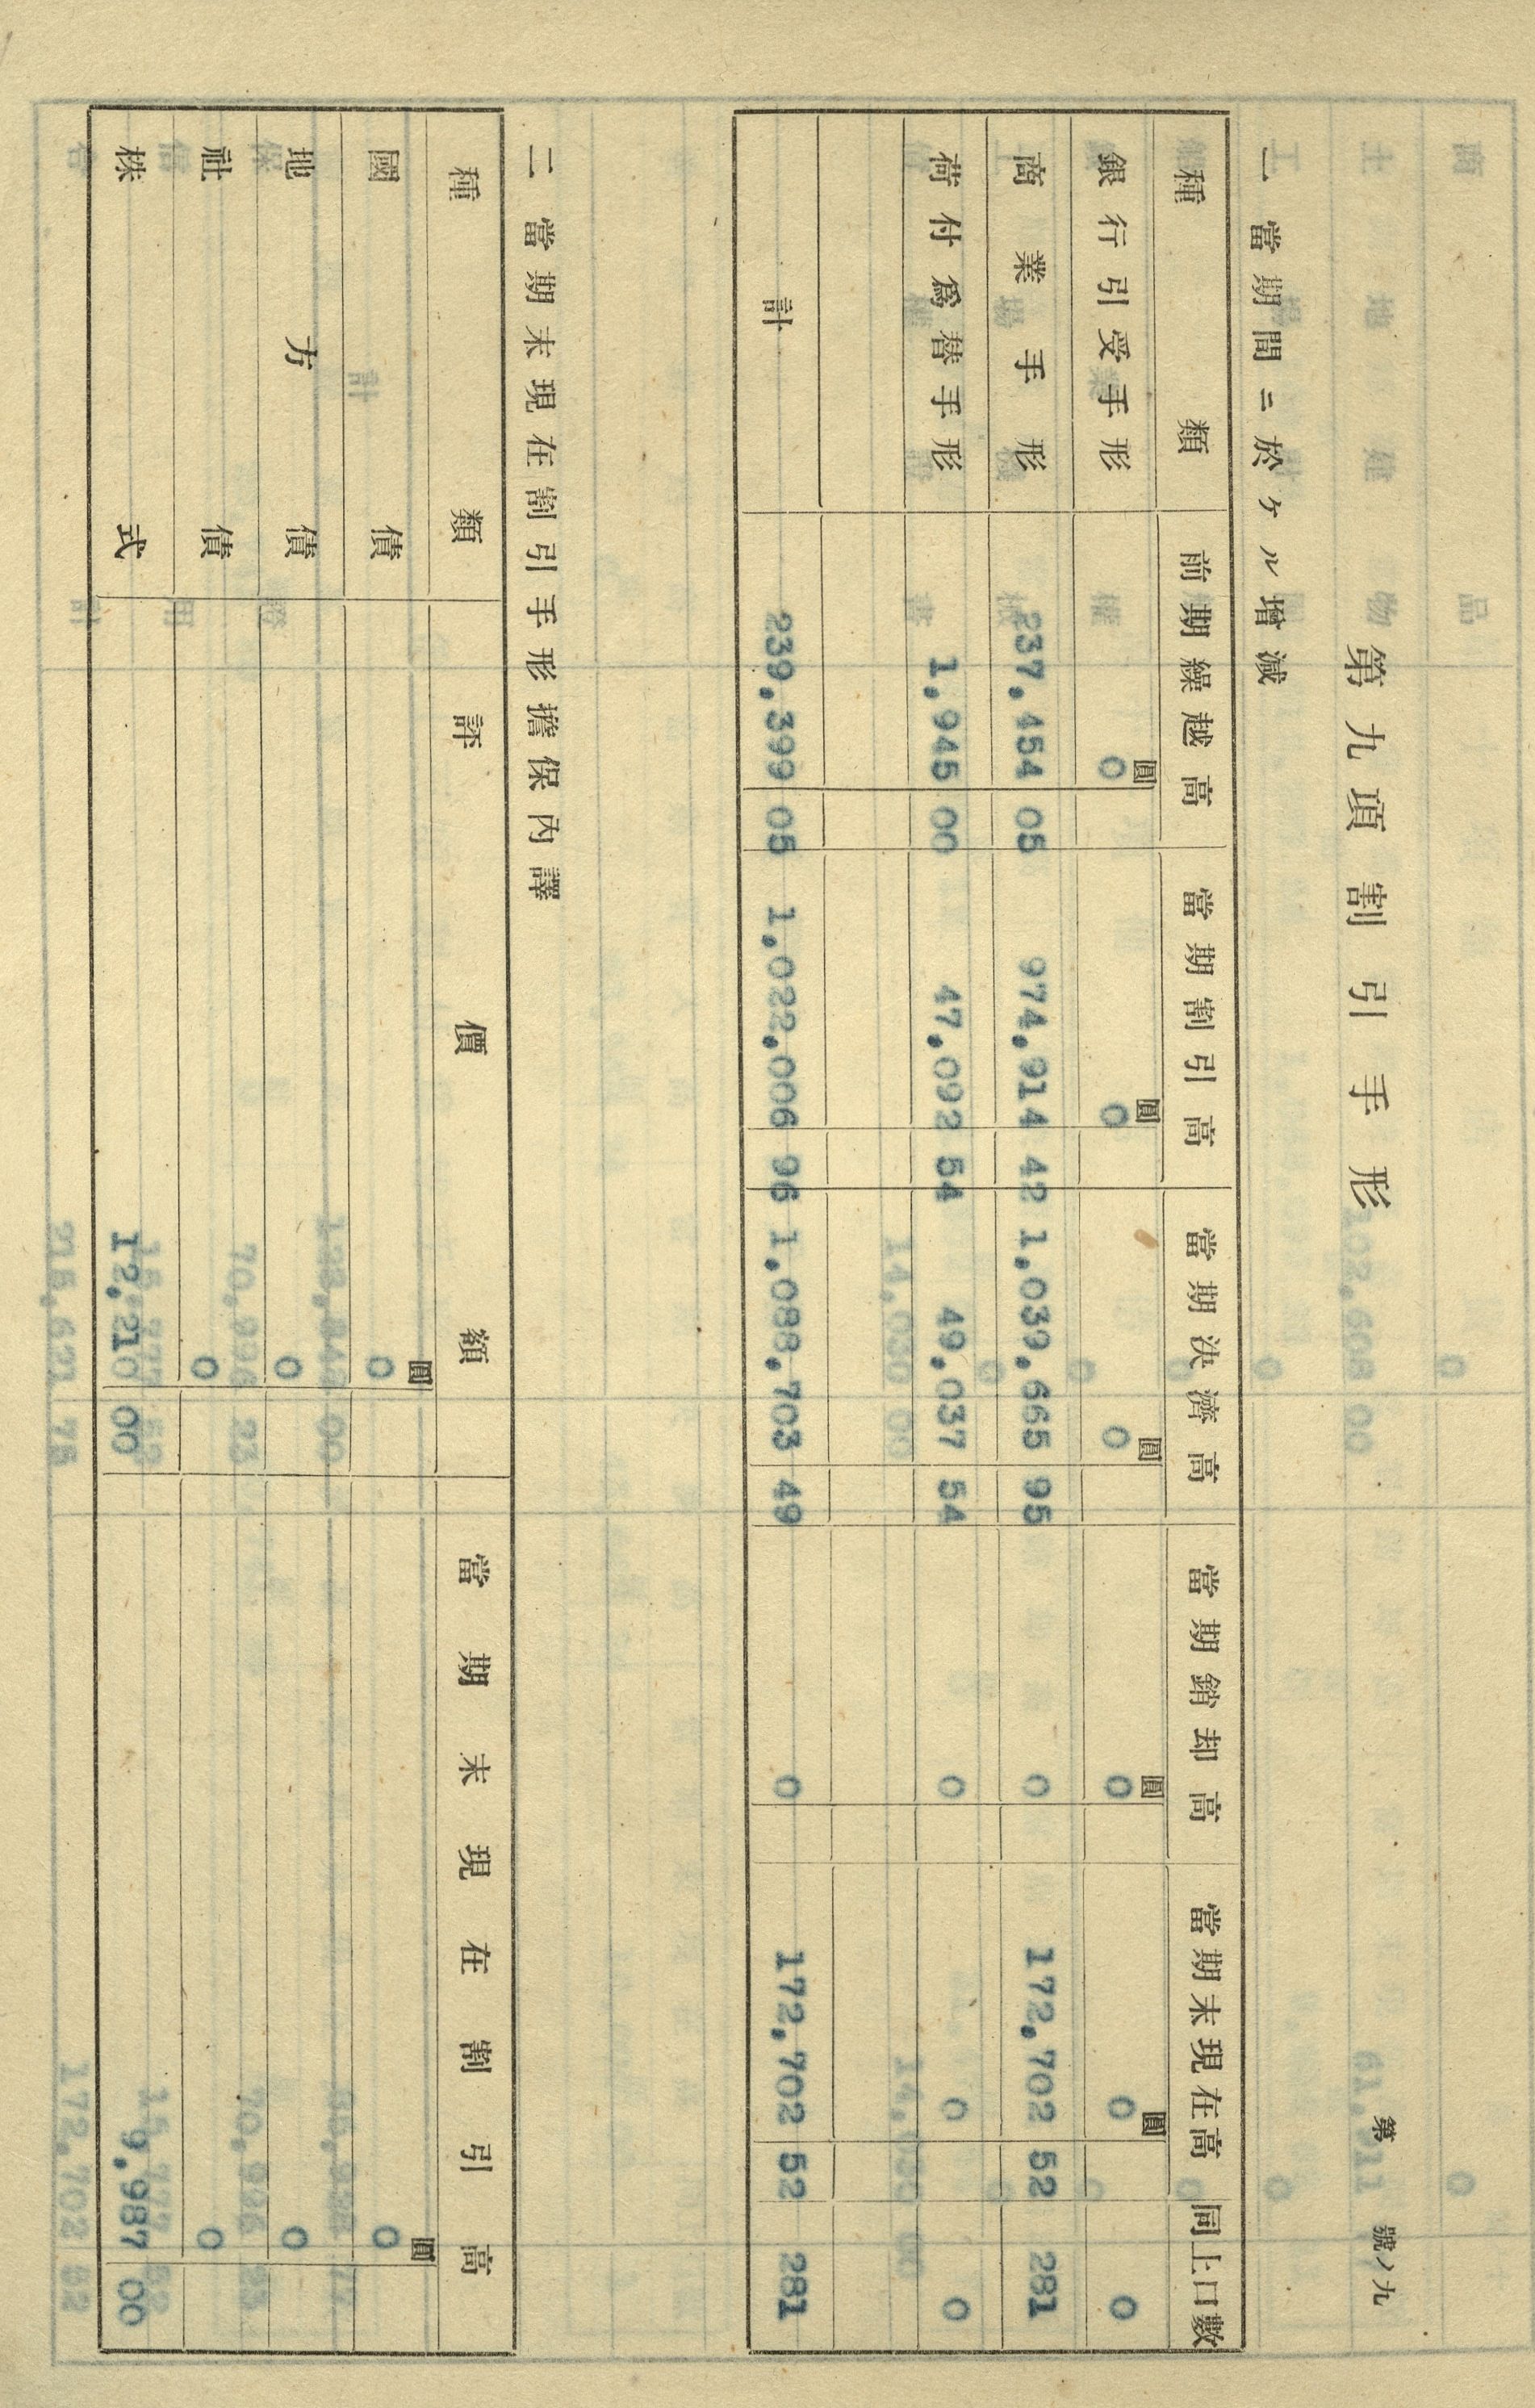 第號ノ九
第九項 割引手形
一 當期間ニ於ケル增減
種類 前期繰越高 當期割引高 當期決濟高 當期銷却高 當期末現在高 同上口數
圓 圓 圓 圓 圓
銀行引受手形 0 0 0 0 0 0
商業手形 237,454 05 974,914 42 1,039,665 95 0 172,702 52 281
荷付爲替手形 1,945 00 47,092 54 49,037 54 0 0 0
計 239,399 05 1,022,006 96 1,088,703 49 0 172,702 52 281
二 當期末現在割引手形擔保內譯
種類 評價額 當期末現在割引高
圓 圓
國債 0 0
地方債 0 0
社債 0 0
株式 12,210 00 9,987 00